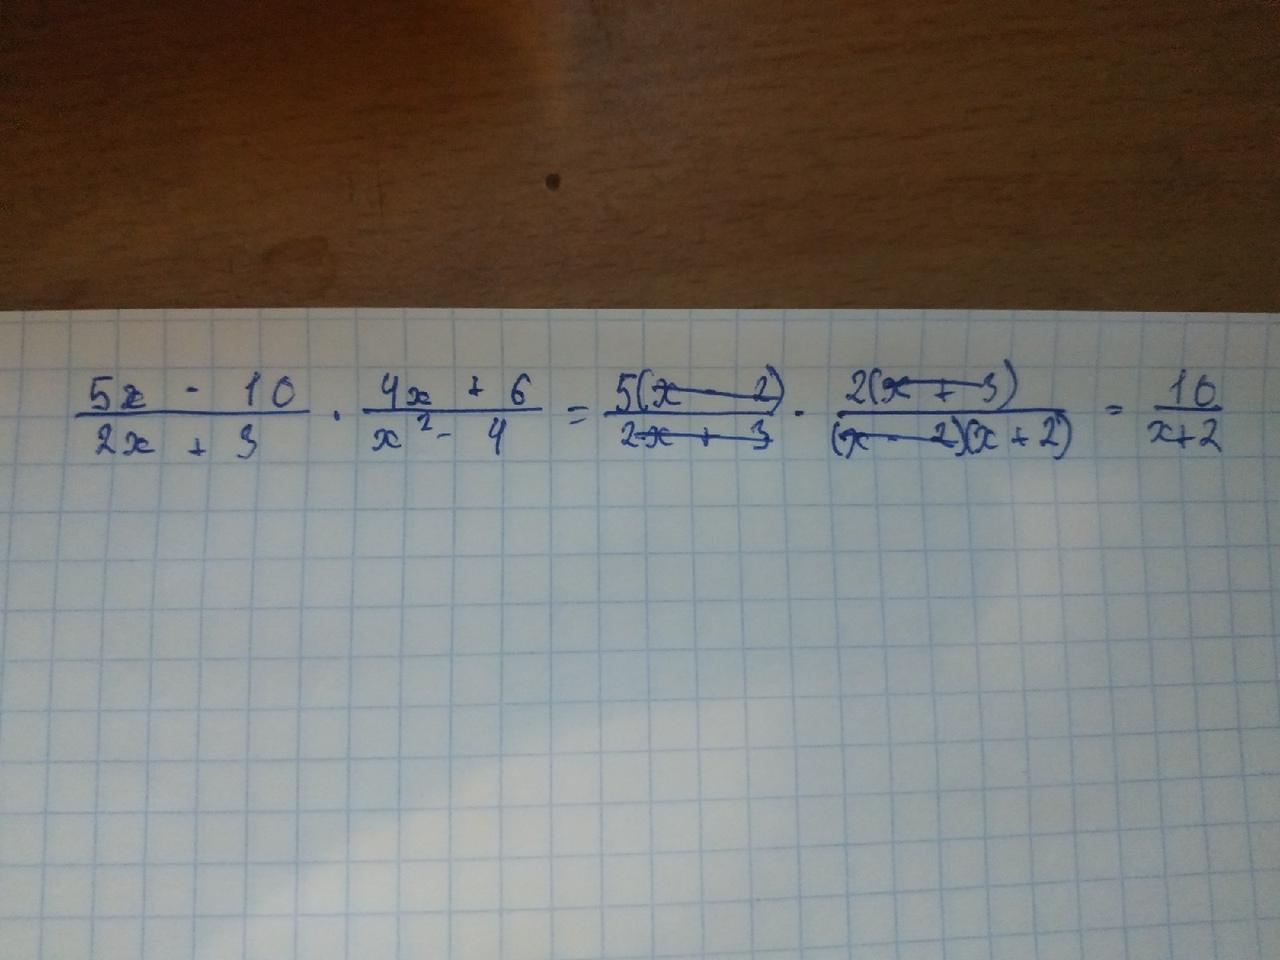 (5x - 10)/(2x + 3) · (4x + 6)/(x² - 4) = 5(x - 2)/(2x + 3) · 2(x + 3)/((x - 2)(x + 2)) = 10/(x+2)